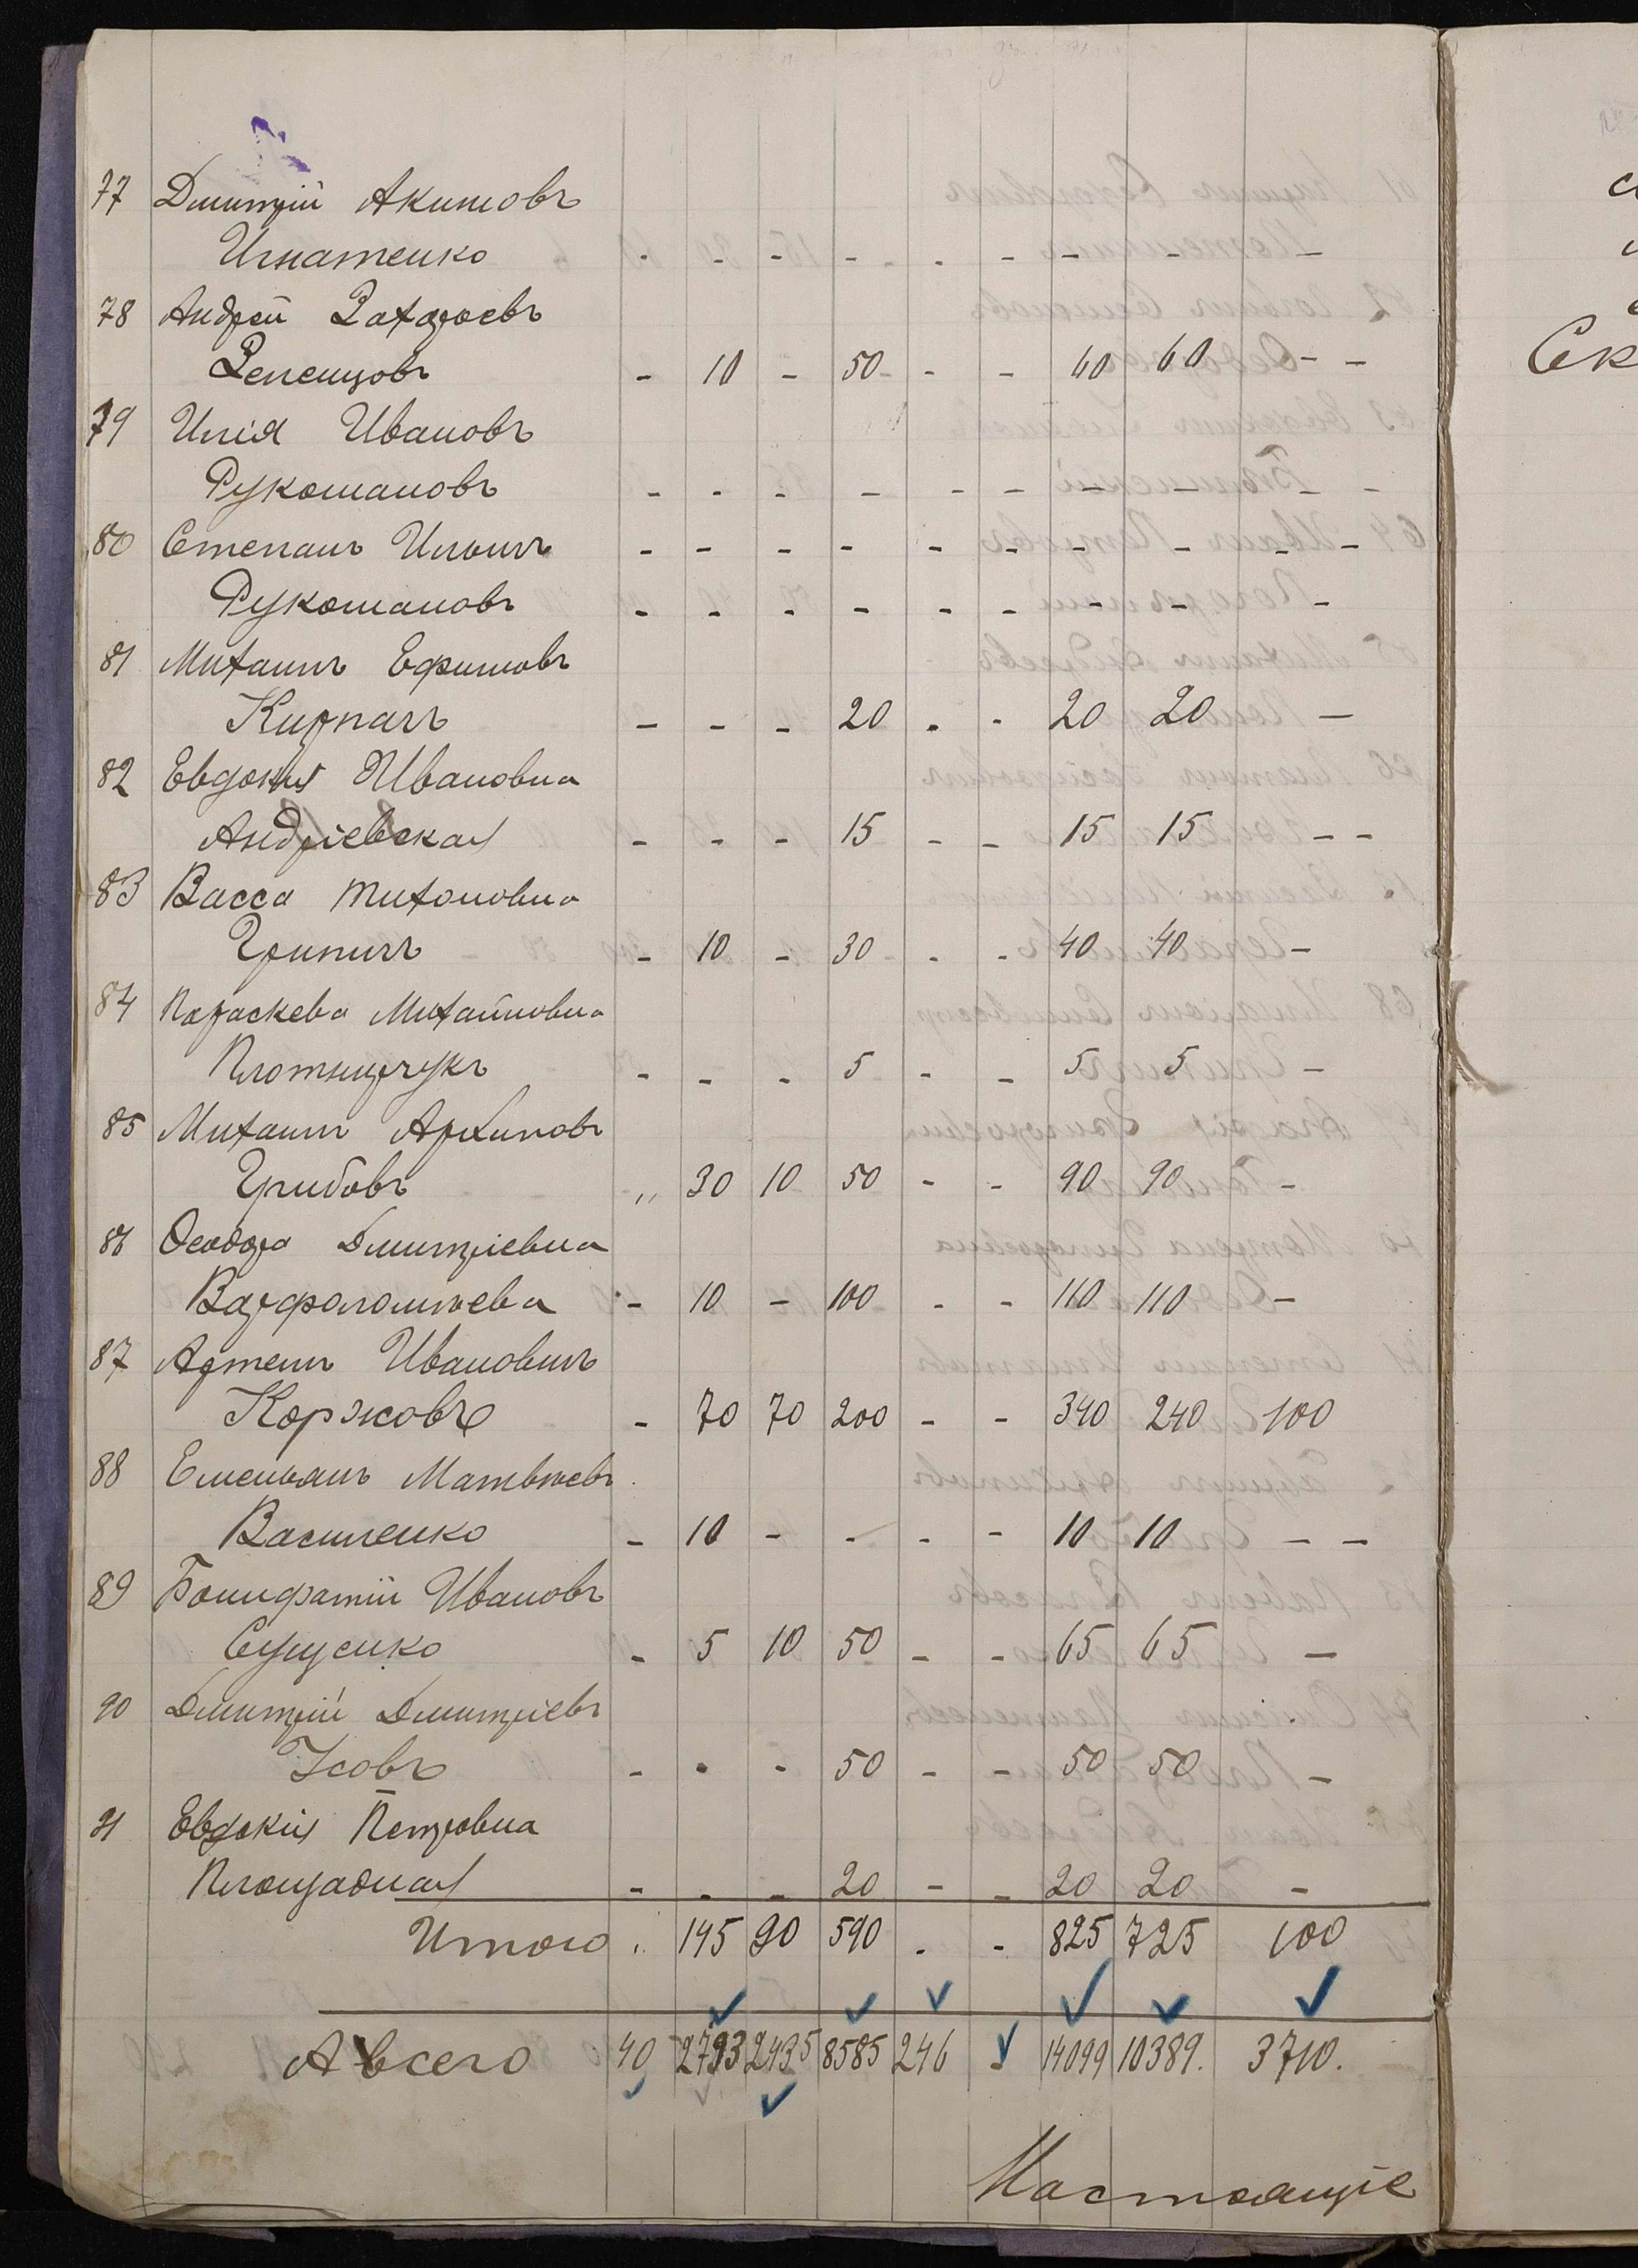 77 Дмитрій Акимовъ
Игнатенко - - - - - - - - -
78 Андрей Захаровъ
Зепенцовъ - 10 - 50 - - 60 60 - -
79 Илія Ивановъ
Рукомановъ - - - - - - - - - -
80 Степанъ Ильинъ - - - - - - - - - -
Рукомановъ - - - - - - - - -
81 Михаилъ Ефимовъ
Кирпачъ - - - 20 - - 20 20 -
82 Евдокія Ивановна
Андріевская - - - 15 - - 15 15 - -
83 Васса Тихоновна
Грипичъ - 10 - 30 - - 40 40 -
84 Параскева Михайловна
- - - 5 - - 5 5 -
85 Михаилъ Архиповъ
Грибовъ „ 30 10 50 - - 90 90 -
86 Ѳеодора Дмитріевна
Варфоломѣева - 10 - 100 - - 110 110 -
87 Артемъ Ивановичъ
Коржовъ - 70 70 200 - - 340 240 100
88 Емельянъ Матвѣевъ
Василенко - 10 - - - - 10 10 - -
89 Бонифатій Ивановъ
- 5 10 50 - - 65 65 -
90 Дмитрій Дмитріевъ
Усовъ - - - 50 - - 50 50 -
91 Евдокія Петровна
Площадная - - - 20 - - 20 20 -
Итого „ 145 90 590 - - 825 725 100
А всего 40 2793 2435 8585 246 - 14099 10389. 3710.
Настоящіе
Ск